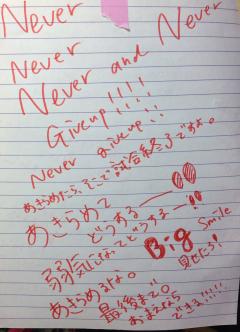 Never
Never
Never and Never
Give up!!!!
Never give up!!
あきらめたら、そこで試合終了ですよ。
あきらめて
どうするー!!
弱気になってどうするー!!
Big smile
見せたろ!
あきらめるな。
最後まで。
おまえなら
できる!!!!!